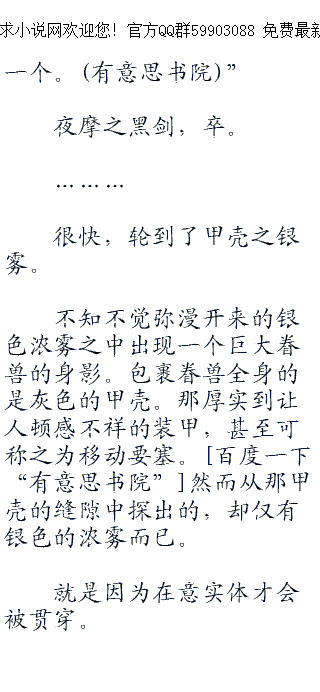 求小说网欢迎您！官方QQ群59903088 免费最新
一个。（有意思书院）”
夜摩之黑剑，卒。
………
很快，轮到了甲壳之银
雾。
不知不觉弥漫开来的银
色浓雾之中出现一个巨大眷
兽的身影。包裹眷兽全身的
是灰色的甲壳。那厚实到让
人顿感不祥的装甲，甚至可
称之为移动要塞。[百度一下
“有意思书院”]然而从那甲
壳的缝隙中探出的，却仅有
银色的浓雾而已。
就是因为在意实体才会
被贯穿。